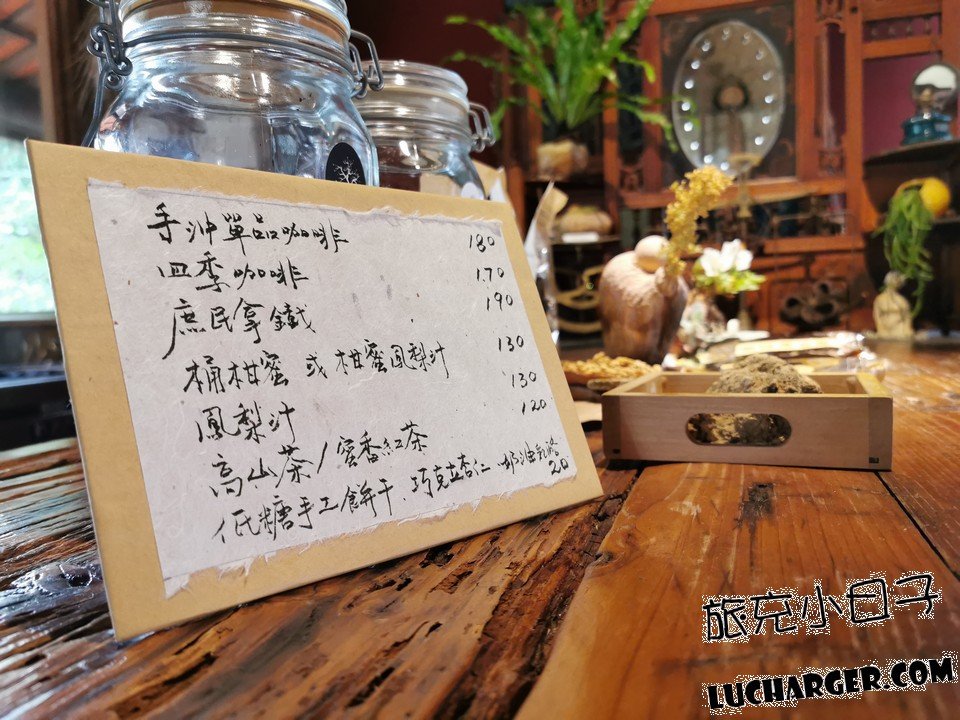 手沖單品咖啡 180
四季咖啡 170
庶民拿鐵 190
桶柑蜜 或 柑蜜鳳梨汁 130
鳳梨汁 130
高山茶/蜜香紅茶 120
低糖手工餅干.巧克立杏仁.奶油乳酪 20
旅充小日子
LUCHARGER.COM